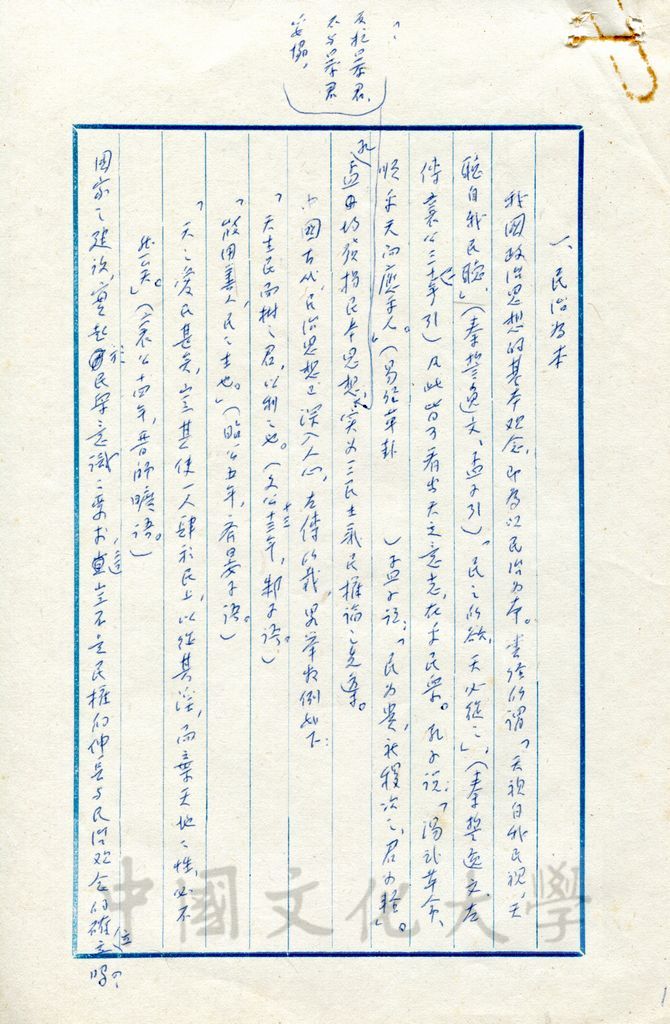 一、民治為本
我國政治思想的基本觀念，即為以民治為本。書經所謂「天視自我民視，天
聽自我民聽」，（泰誓逸文，孟子引）「民之所欲，天必從之」，（泰誓逸文，左
傳襄公三十一年引）凡此皆可看出天之意志，在乎民眾。孔子說：「湯武革命，
順乎天而應乎人。」（易經革卦　　）孟子說：「民為貴，社稷次之，君為輕」。
孟
發揚民本思想，實為三民主義民權論之先導。
中國古代，民治思想，深入人心，左傳所載，略舉數例如下：
「天生民而樹之君，以利之也。（文公十三年，邾子語。）
「能用善人，民之主也。」（昭公五年，
語。）
「天之愛民甚矣，豈其使一人肆於民上，以從其淫，而棄天地之性，必不
然矣」。（襄公十四年，晉師曠語。）
國家之建設，實起於民眾意識之要求，這豈不是民權的伸長與民治觀念的確立嗎？
「
反抗暴君，
不與暴君
妥協，
中國文化大學